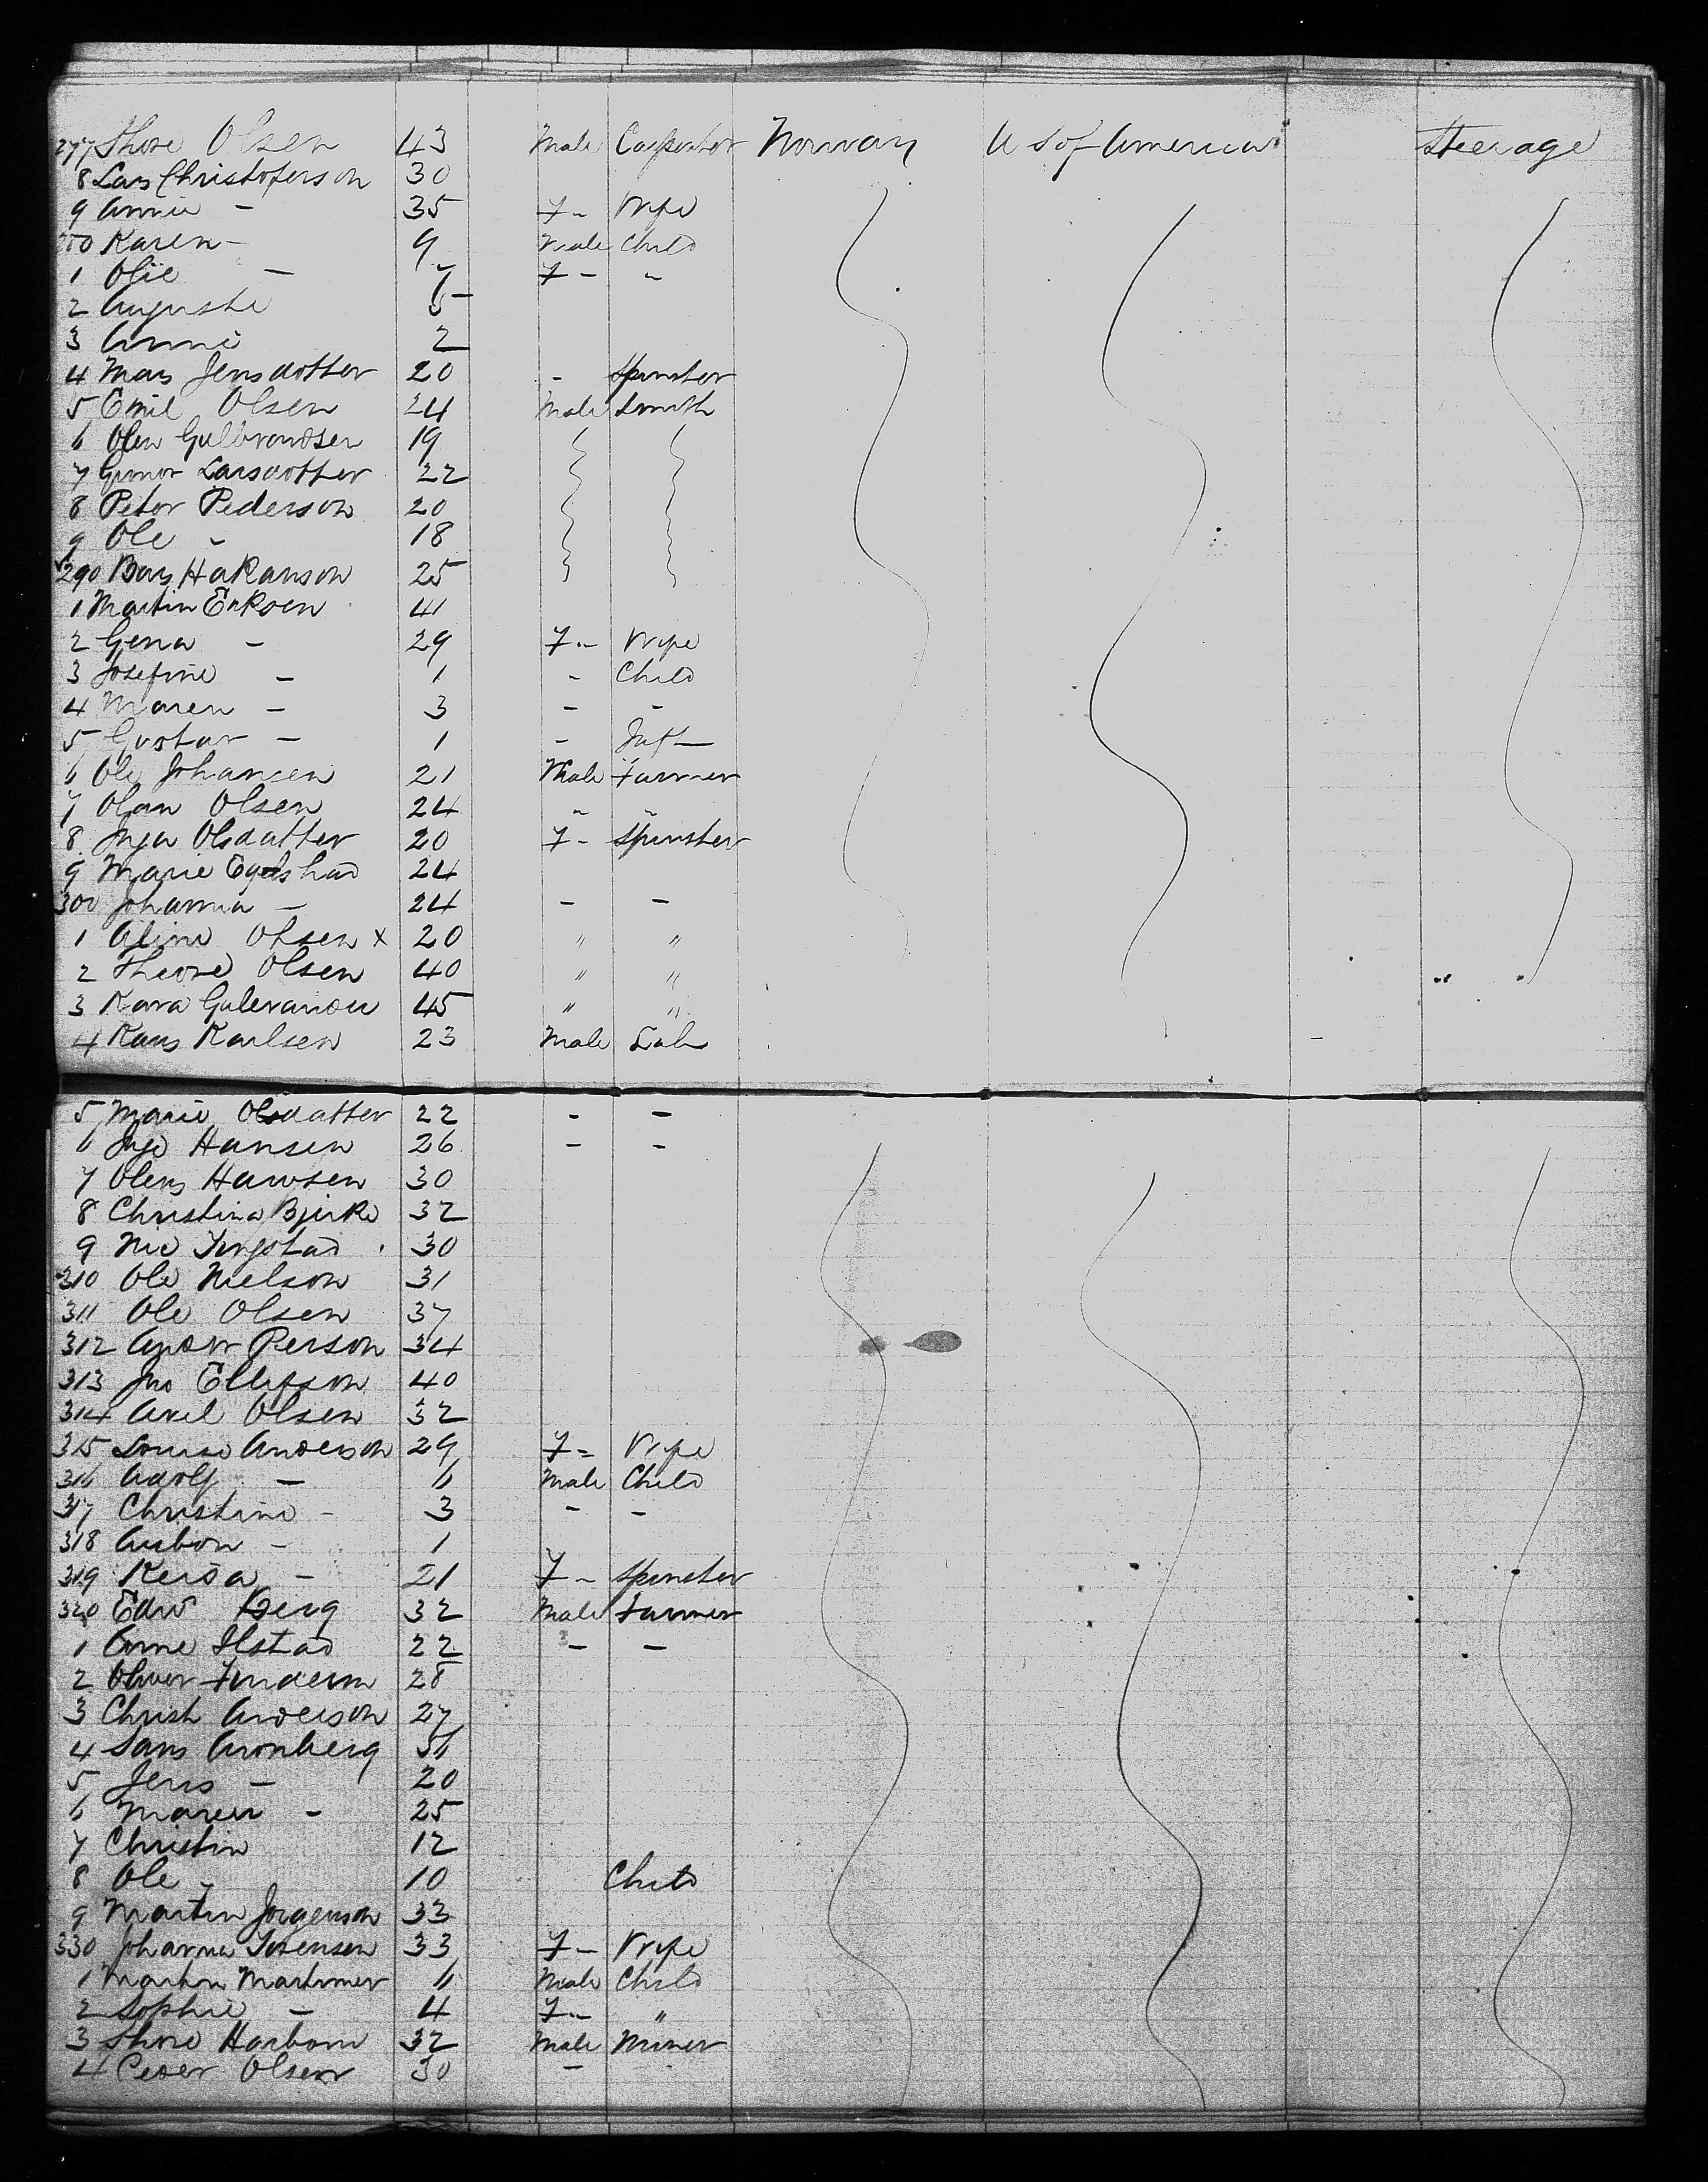 277 Thore Olsen 43 Male Carpenter Norway U S of America Steerage
8 Lars Christoferson 30
9 Annie - 35 F - Wife
280 Karen - 9 Male Child
1 Olie - 7 F - "
2 Auguste 5
3 Anne 2
4 Mars Jensdotter 20 - Spinster
5 Emil Olsen 24 Male Smith
6 Olen Gulbrandsen 19
7 Gunor Larsdotter 22
8 Peter Pederson 20
9 Ole - 18
290 Hakanson 25
1 Martin Eriksen 41
2 Gena - 29 F - Wife
3 Josefine - 1 - Child
4 Maren - 3 - -
5 Gustav - 1 - Inft
6 Ole Johansen 21 Male Farmer
7 Olan Olsen 24 " "
8 Inga Olsdatter 20 F - Spinster
9 Marie 24
300 Johanna - 24 - -
1 Aline Olsen x 20 " "
2 Theone Olsen 40 " "
3 Kara 45 " "
4 Kans Karlsen 23 Male Lab
5 Marie Olsdatter 22 - -
6 Inge Hansen 26 - -
7 Olens Hansen 30
8 Christina Bjerke 32
9 30
310 Ole Nielson 31
311 Ole Olsen 37
312 Andr Person 34
313 Jno Ellifson 40
314 Axel Olsen 32
315 Louise Anderson 29 F - Wife
316 Adolf - 6 Male Child
317 Christine - 3 - -
318 - 1
319 - 21 F - Spinster
320 Edw Berg 32 Male Farmer
1 Arne Ilstad 22 - -
2 Oliver 28
3 Christ Anderson 27
4 Lars Cronberg 56
5 Jens - 20
6 Maren - 25
7 Christin 12
8 Ole - 10 Child
9 Martin Jorgenson 33
330 Johanna Sorensen 33 F - Wife
1 Martin Martinner 6 Male Child
2 Sophie - 4 F - "
3 Thore Harbom 32 Male Miner
4 Peder Olsen 30 -